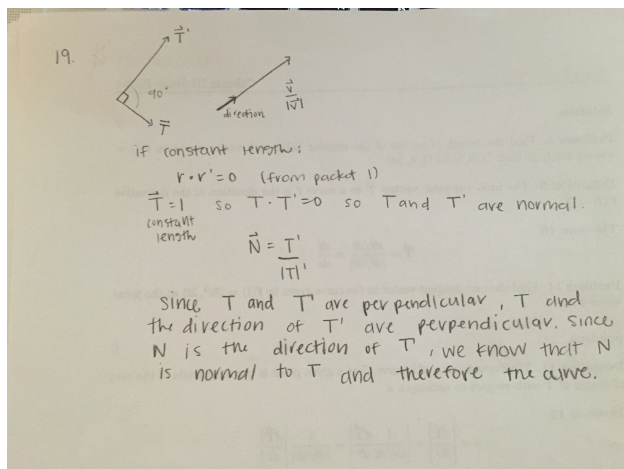 19.
T⃗'
90°
T⃗
direction
v⃗
|v⃗|
if constant length:
r · r' = 0 (from packet 1)
T⃗ = 1 so T · T' = 0 so T and T' are normal.
constant
length
N⃗ = T'
|T|'
Since T and T' are perpendicular, T and
the direction of T' are perpendicular. Since
N is the direction of T', we know that N
is normal to T and therefore the curve.